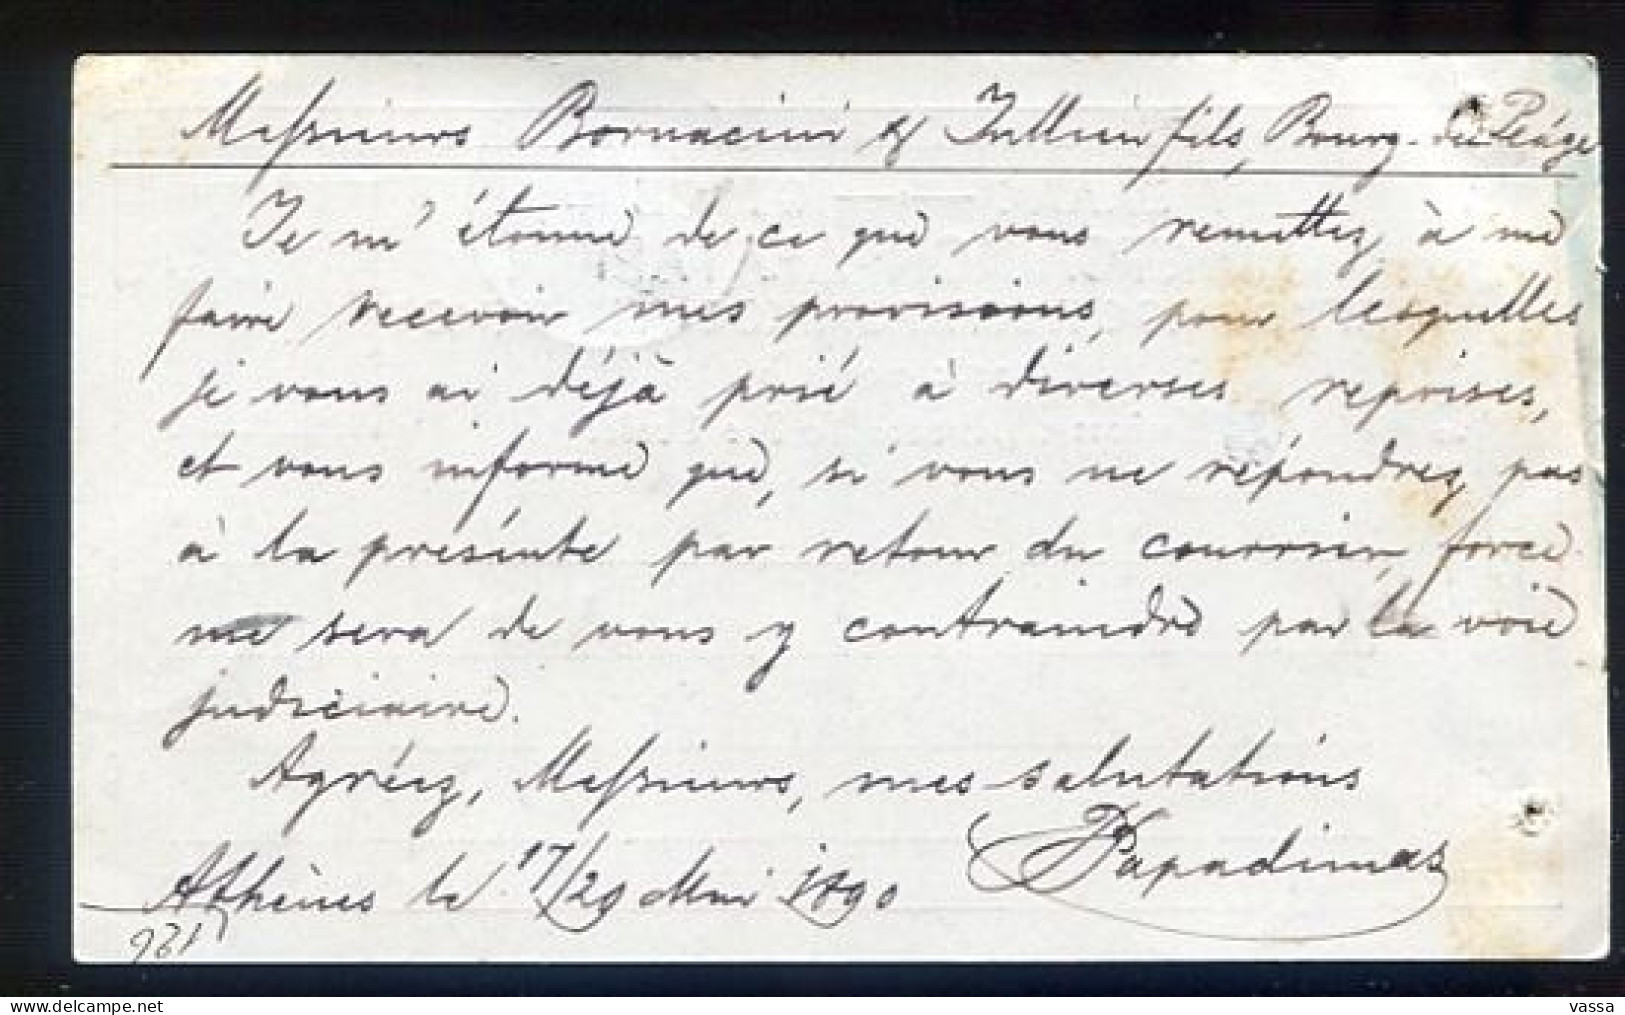 Messieurs Bornacini & Jullien fils, Bourg-du Péage
Je m'étonne de ce que vous remettez à me
faire recevoir mes provisions, pour lesquelles
je vous ai déjà prié à diverses reprises,
et vous informe que, si vous ne répondrez pas
à la présente par retour du courrier, force
me sera de vous y contraindre par la voie
judiciaire.
Agréez, Messieurs, mes salutations
Papadimas
Athènes le 17/29 Mai 1890
vassa